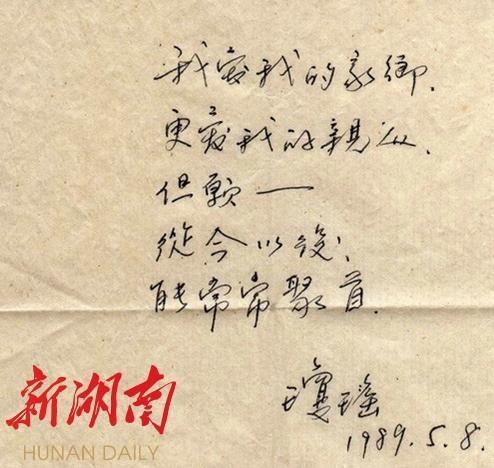 我爱我的家鄉.
更爱我的親人.
但願——
從今以後,
能常常聚首.
瓊瑤
1989.5.8.
新湖南
HUNAN DAILY